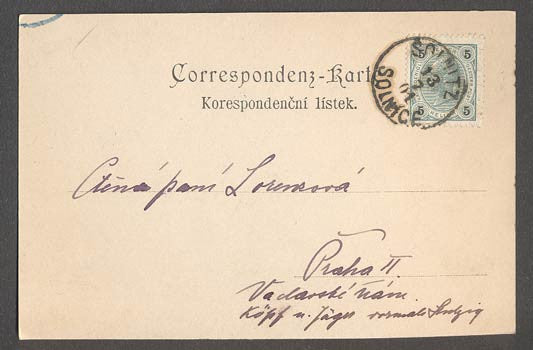 Correspondenz-Karte
Korespondenční lístek.
5 5
SOLNITZ
13
01
SOLNICE
5 5
Ctěná paní Lorenzová
Praha II.
Václavské nám.
Köpf u. Jäger vormals